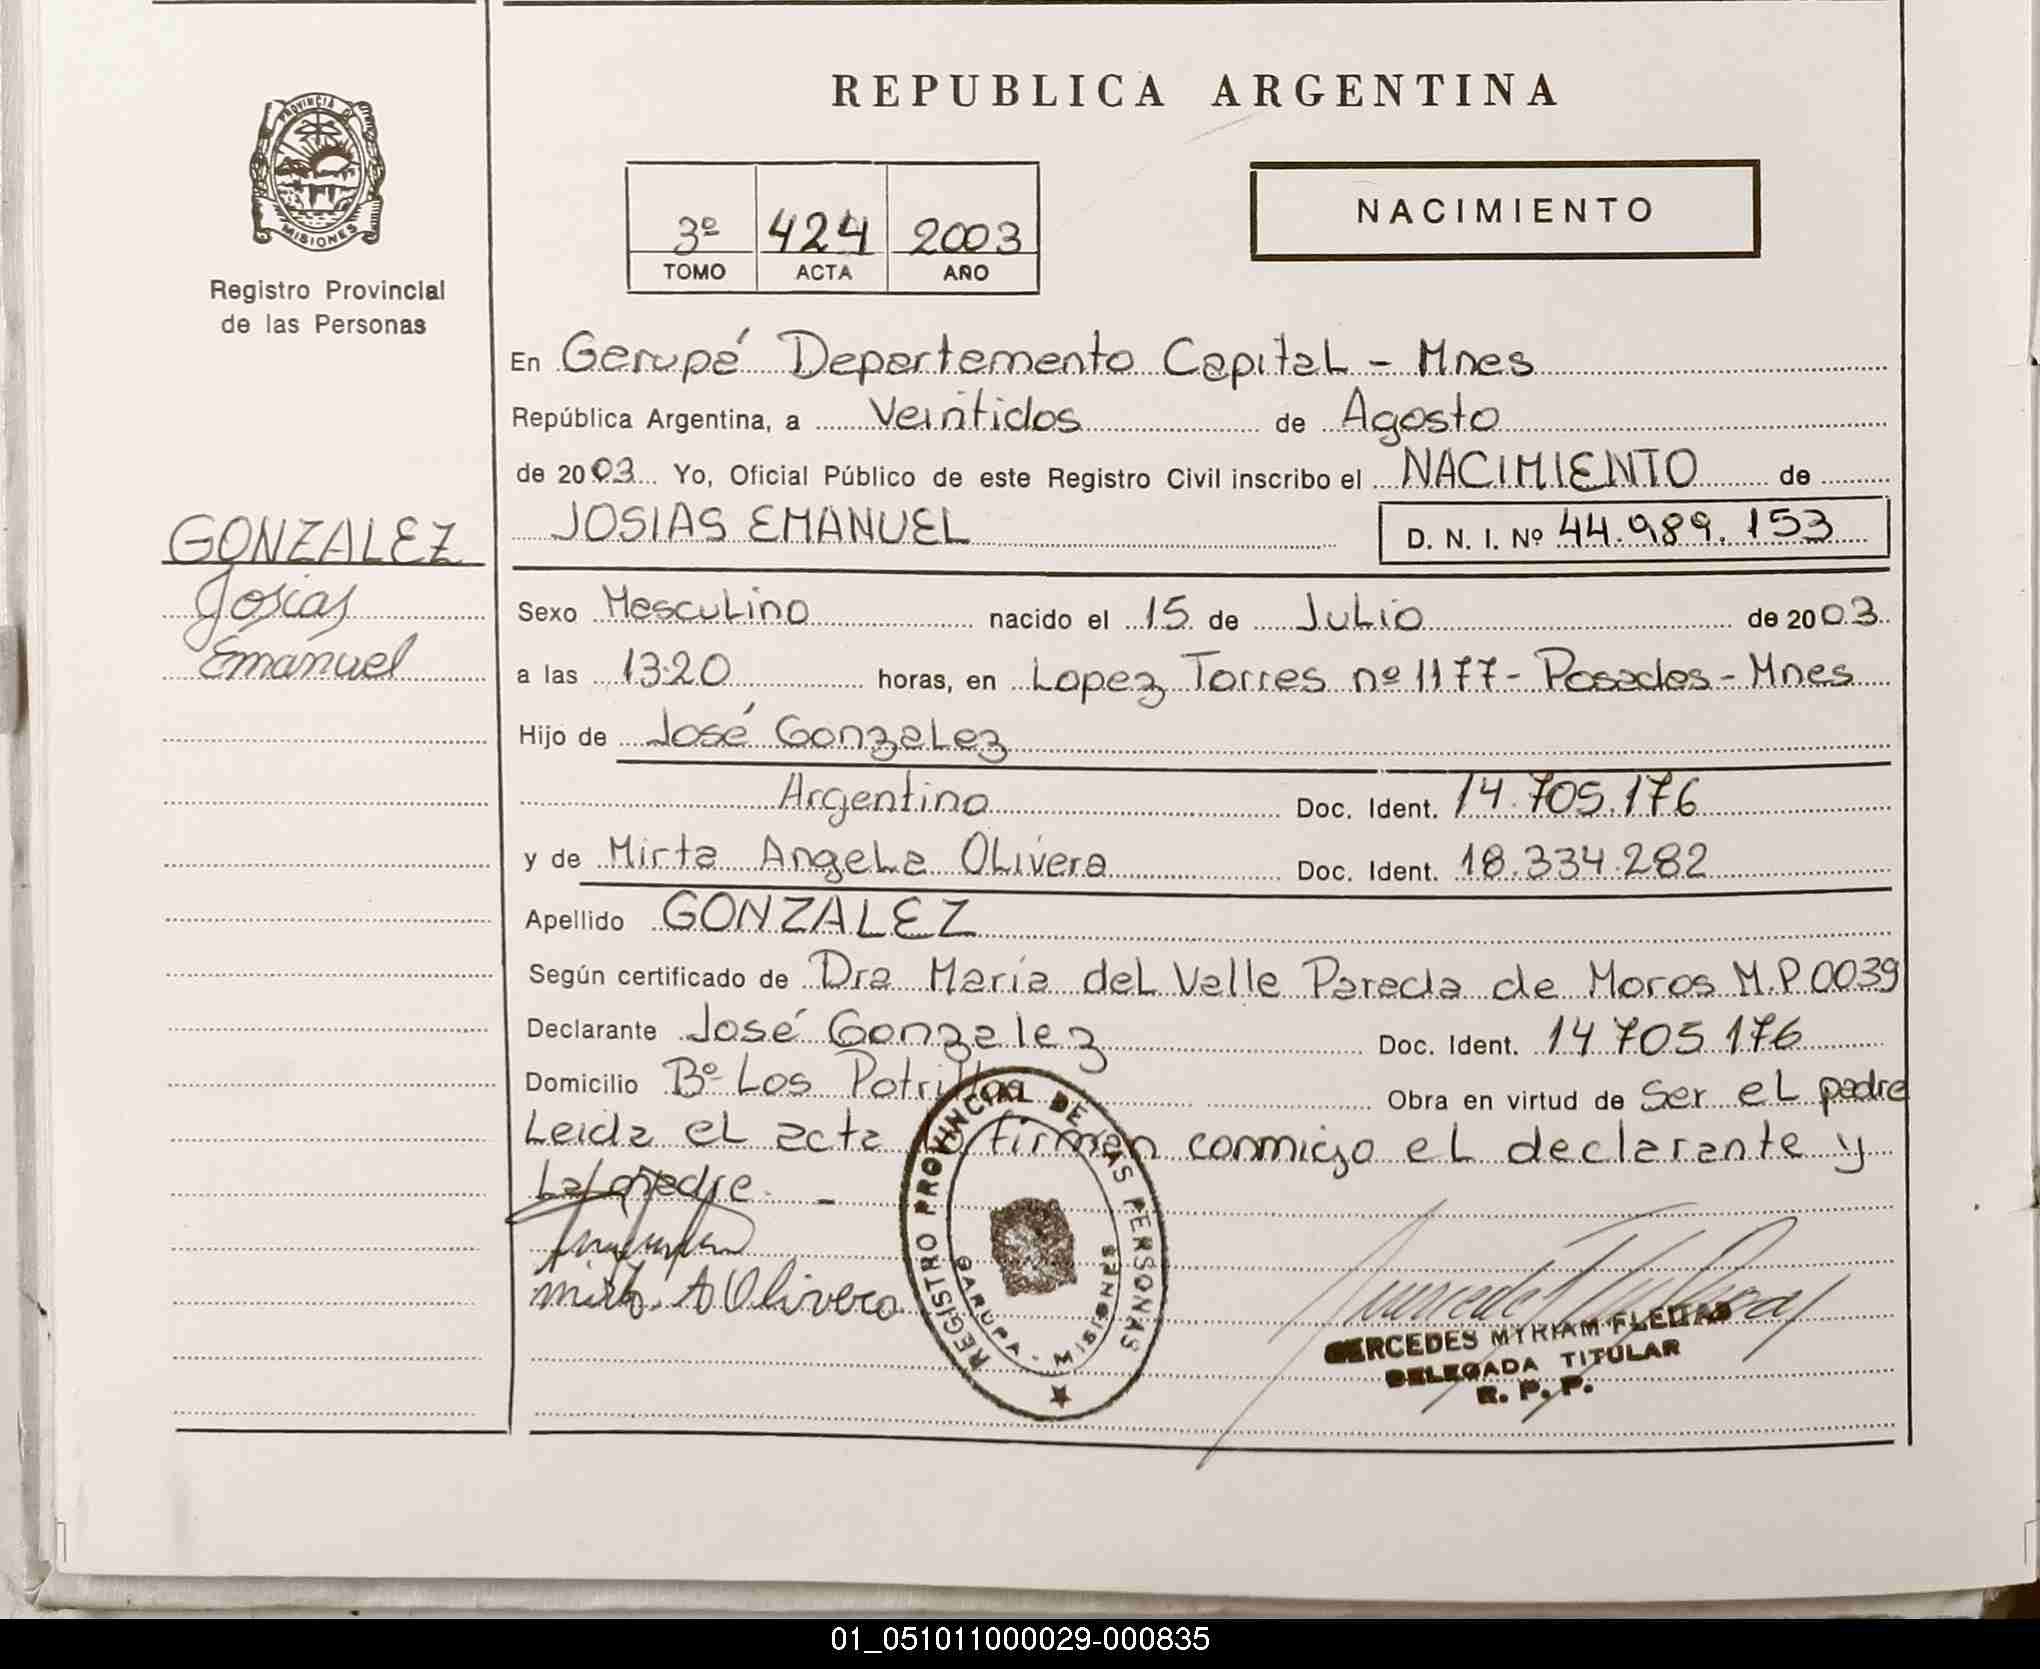 REPUBLICA ARGENTINA
PROVINCIA DE
MISIONES
Registro Provincial
de las Personas
3º 424 2003
TOMO ACTA AÑO
NACIMIENTO
En Garupá Departamento Capital - Mnes
República Argentina, a Veintidos de Agosto
de 2003 Yo, Oficial Público de este Registro Civil inscribo el NACIMIENTO de
JOSIAS EMANUEL D. N. I. Nº 44.989.153
GONZALEZ
Josias
Emanuel
Sexo Masculino nacido el 15 de Julio de 2003
a las 13:20 horas, en Lopez Torres nº 1177 - Posadas - Mnes
Hijo de José Gonzalez
Argentino Doc. Ident. 14.705.176
y de Mirta Angela Olivera Doc. Ident. 18.334.282
Apellido GONZALEZ
Según certificado de Dra María del Valle Pareda de Moros M.P.0039
Declarante José Gonzalez Doc. Ident. 14 705 176
Domicilio Bº Los Potrillos Obra en virtud de ser el padre
Leida el acta firman conmigo el declarante y
La madre. -
Mirta A Olivera
REGISTRO PROVINCIAL DE LAS PERSONAS
GARUPA - MISIONES
MERCEDES MYRIAM FLEITAS
DELEGADA TITULAR
R. P. P.
01_051011000029-000835